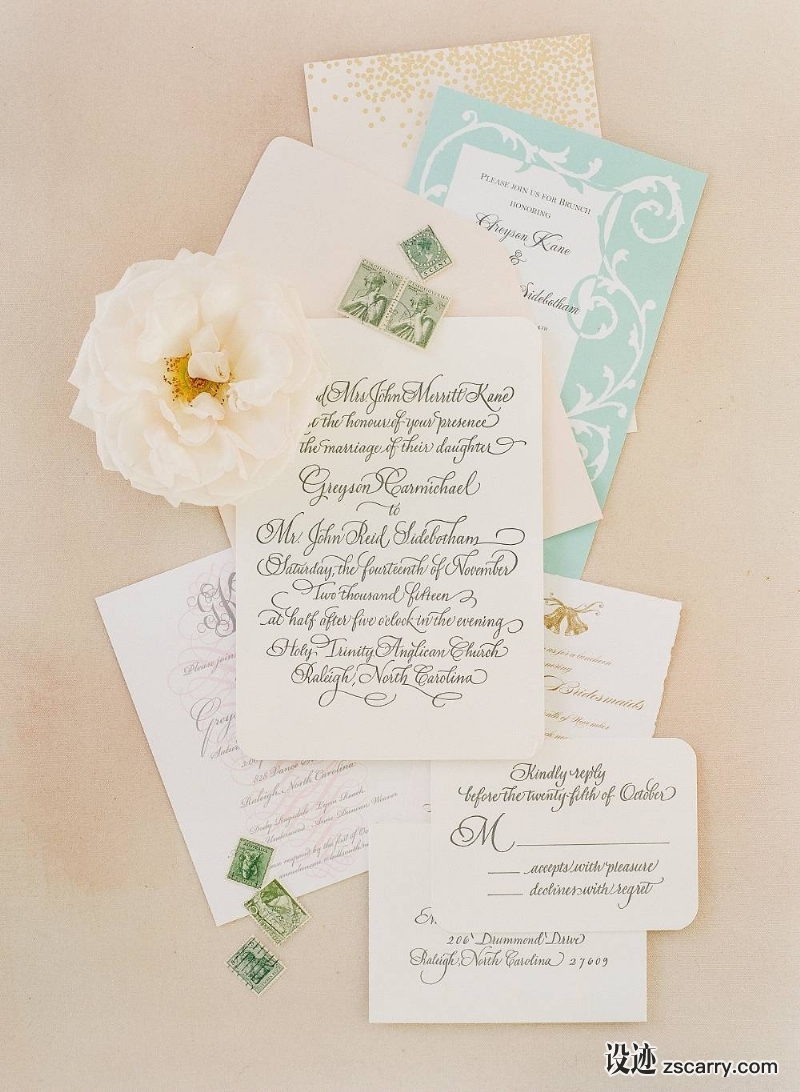 Please join us for Brunch
honoring
Greyson Kane
&
Sidebotham
Mrs John Merritt Kane
the honour of your presence
the marriage of their daughter
Greyson Carmichael
to
Mr. John Reid Sidebotham
Saturday, the fourteenth of November
Two thousand fifteen
at half after five o'clock in the evening
Holy Trinity Anglican Church
Raleigh, North Carolina
Please join
Raleigh, North Carolina
Bridesmaids
of November
Kindly reply
before the twenty-fifth of October
M
accepts with pleasure
declines with regret
206 Drummond Drive
Raleigh, North Carolina 27609
设迹 zscarry.com